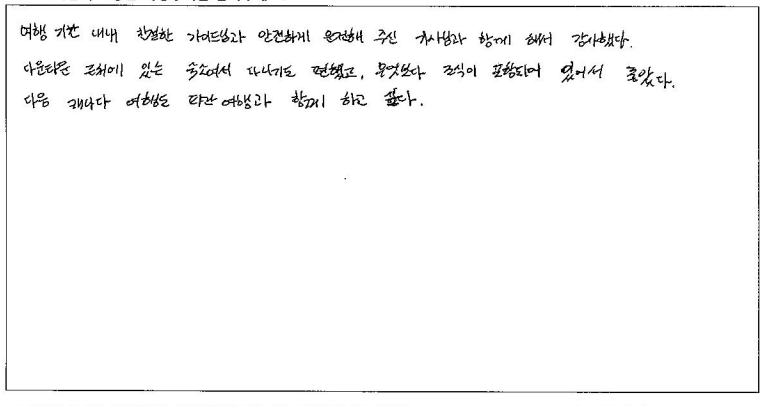 여행 기간 내내 친절한 가이드님과 안전하게 운전해 주신 기사님과 함께 해서 감사했다.
다운타운 근처에 있는 숙소여서 다니기도 편했고, 무엇보다 조식이 포함되어 있어서 좋았다.
다음 캐나다 여행도 파란여행과 함께 하고 싶다.